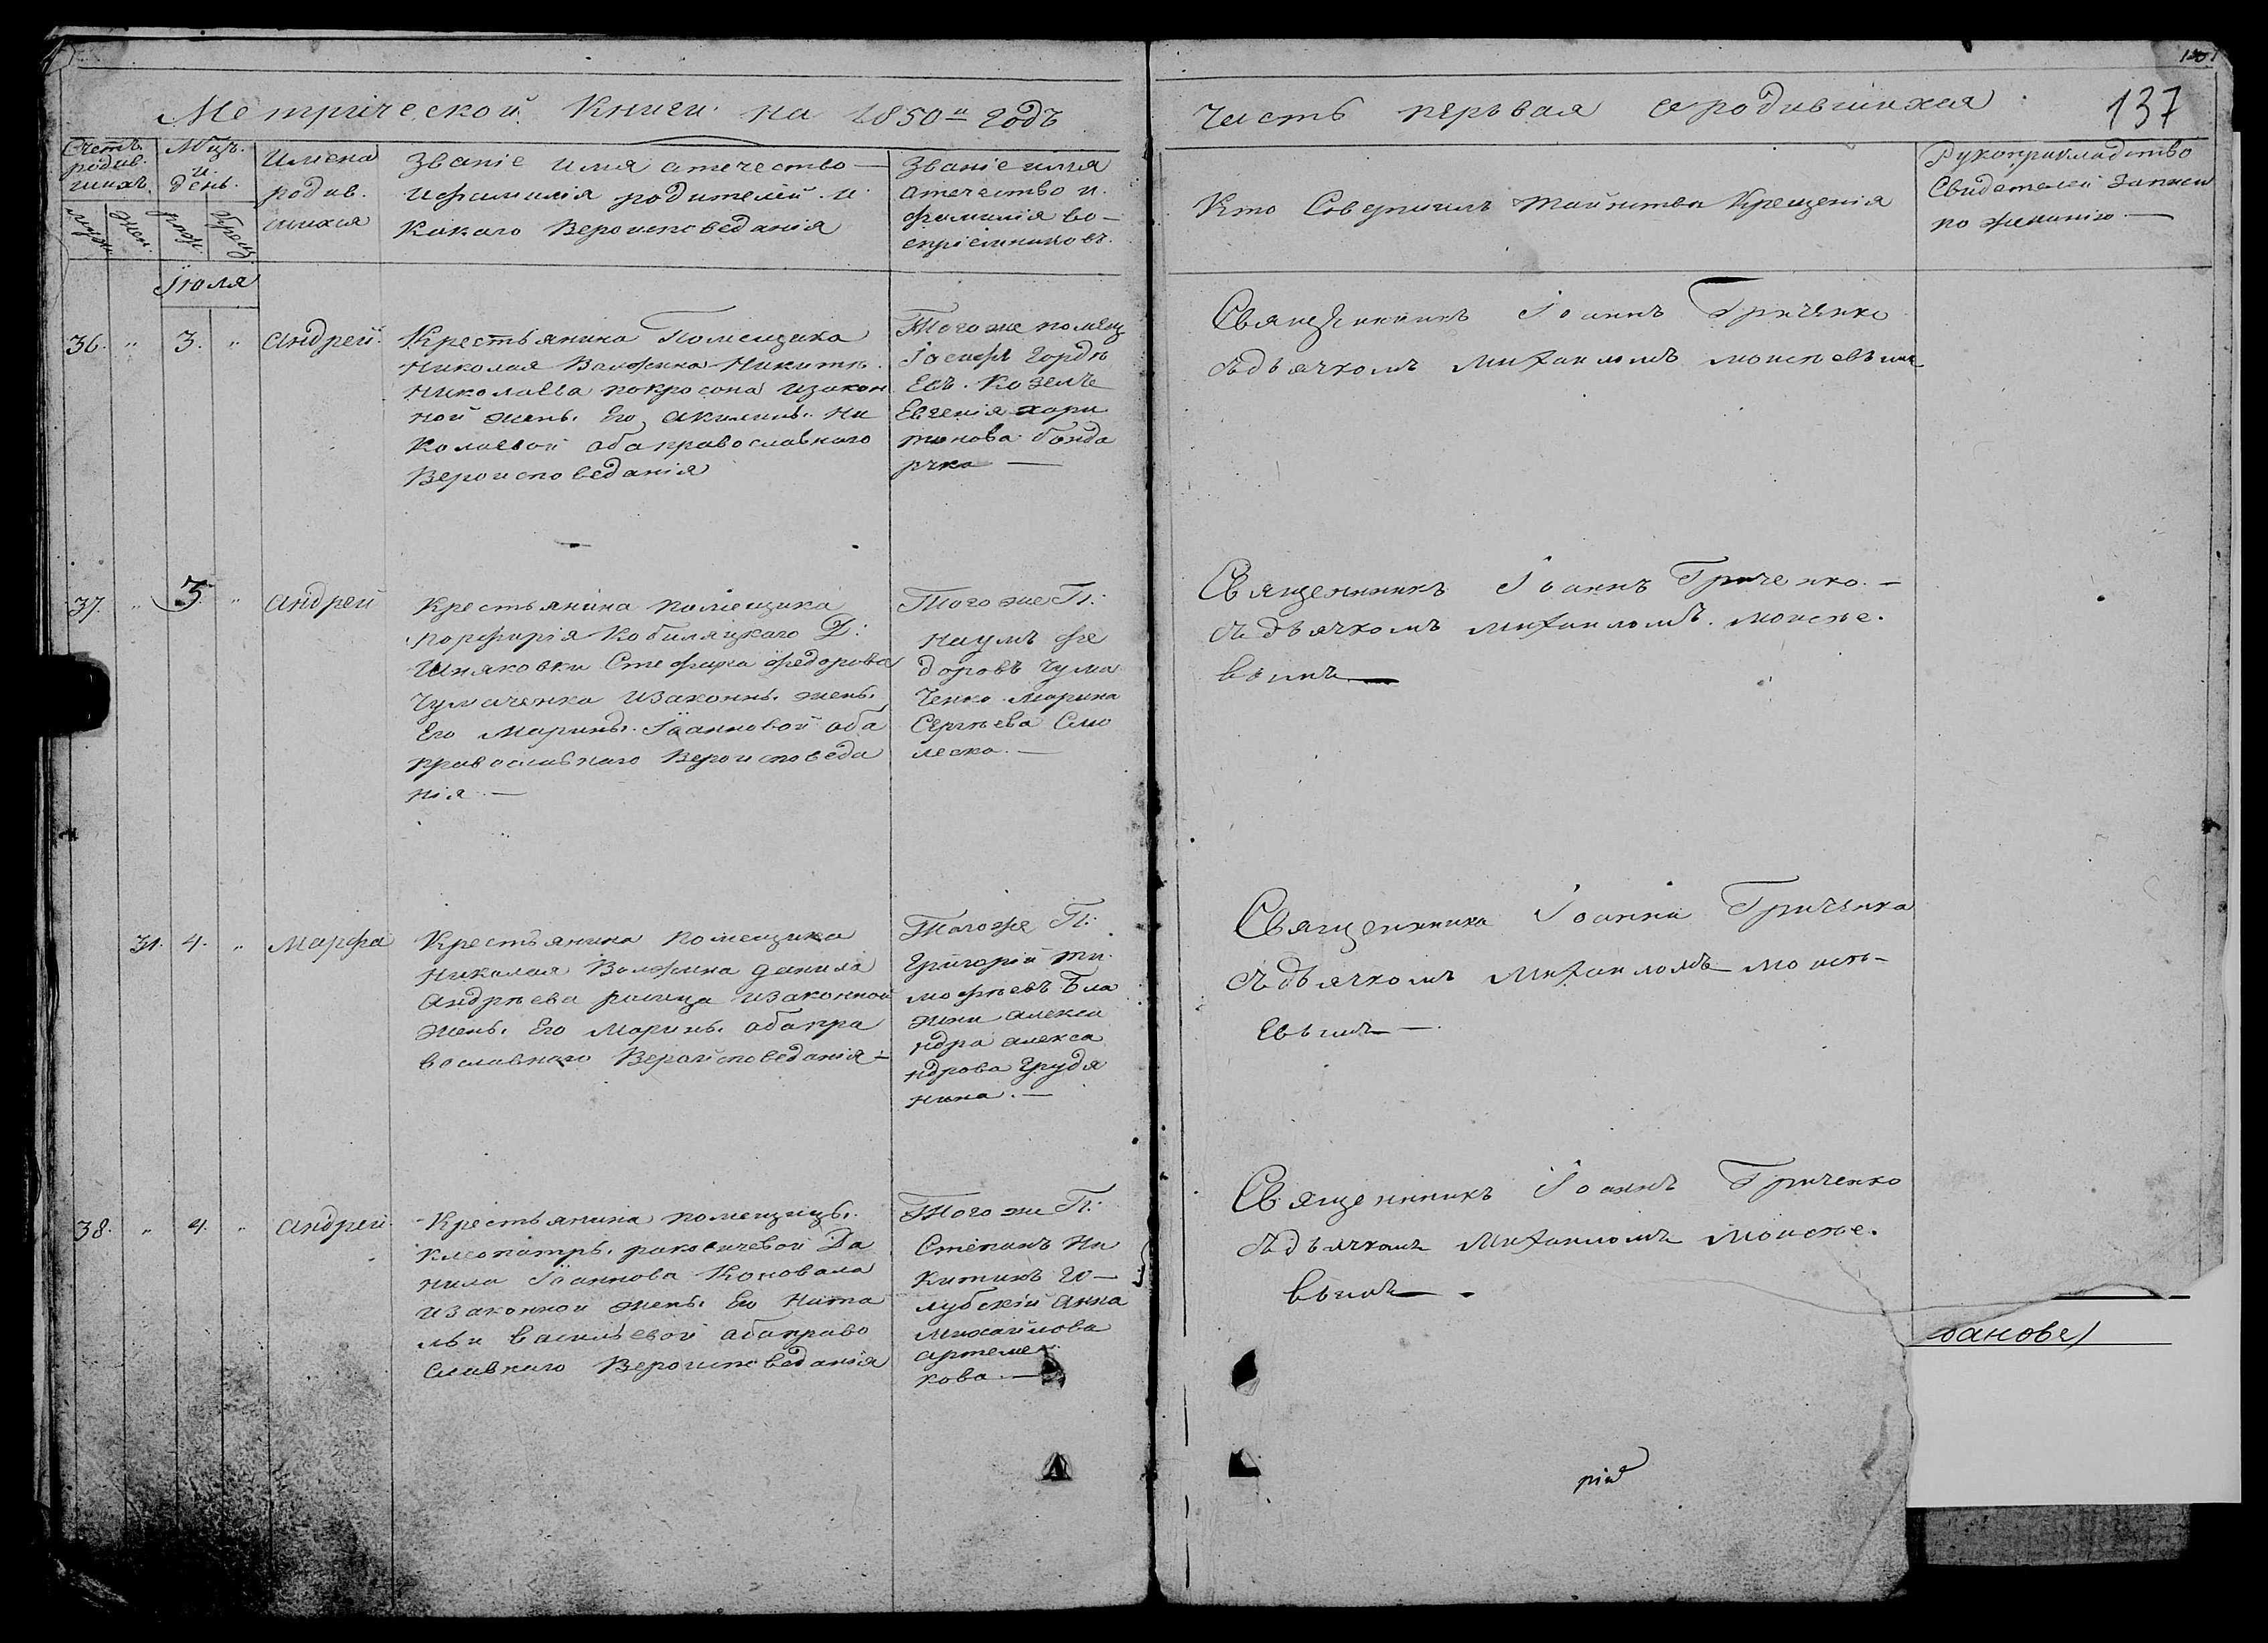 Метрической Книги на 1850й годъ
Часть первая о родившихся
137
Счетъ родив. шихъ.
муж. жен.
Мцъ. и день.
рож. Крещ.
Имена родив. шихся
Званіе имя отечество
и фамилія родителей. и
Какаго Вероисповеданія
Званіе имя
отечество и
фамилія во-
спріемниковъ.
Кто Совершилъ Тайнства Крещенія
Рукоприкладство
Свидетелей Записи
по желанію
Іюля
36. " 3. " андрей.
Крестьянина Помещика
Николая Волжина Никиты
Николаева покросона изакон
ной жены. Его акилины. Ни
Колаевой оба православнаго
Вероисповеданія
Того же помещ
Іосифъ Горде
Евъ. Козелъ
Евгенія хари
тонова бонда
рчка
Священникъ Іоаннъ Гриченко
съдьячкомъ Михаиломъ моисеевымъ
37. " 3. " андрей
Крестьянина помещика
порфирія Кобиляцкаго Д:
Шняковки Стефана федорова
Чумаченка изаконны. жены.
Его Марины. Іоанновой оба
православнаго Вероисповеда
нія.
Того же П:
Наумъ фе
доровъ Чума
ченко Марина
Сергѣева Смо
леска.
Священникъ Іоаннъ Гриченко.
съдьячкомъ михаиломъ. моисее.
вымъ
31. 4. " Марфа
Крестьянина помещика
Николая Волжина данила
андрѣева изаконной
жены. Его Марины. оба пра
вославнаго Вероисповеданія
Того же П:
Григорій ти.
мофѣевъ Бла
жки алекса
ндра алекса
ндрова Грудя
нина.
Священника Іоанна Гриченка
съдьячкомъ Михаиломъ моисе-
евымъ
38. " 4. " андрей
Крестьянина помещицы.
Клеопатры. раковичевой Да
нила Іоаннова Коновала
изаконной жены. Его Ната
льи Васильевой оба право
славнаго Вероисповеданія
Того же П:
Степанъ Ни
китинъ Го-
лубскій анна
михайлова
артеме
кова.
Священникъ Іоаннъ Гриченко
съдьячкомъ Михаиломъ моисее.
вымъ